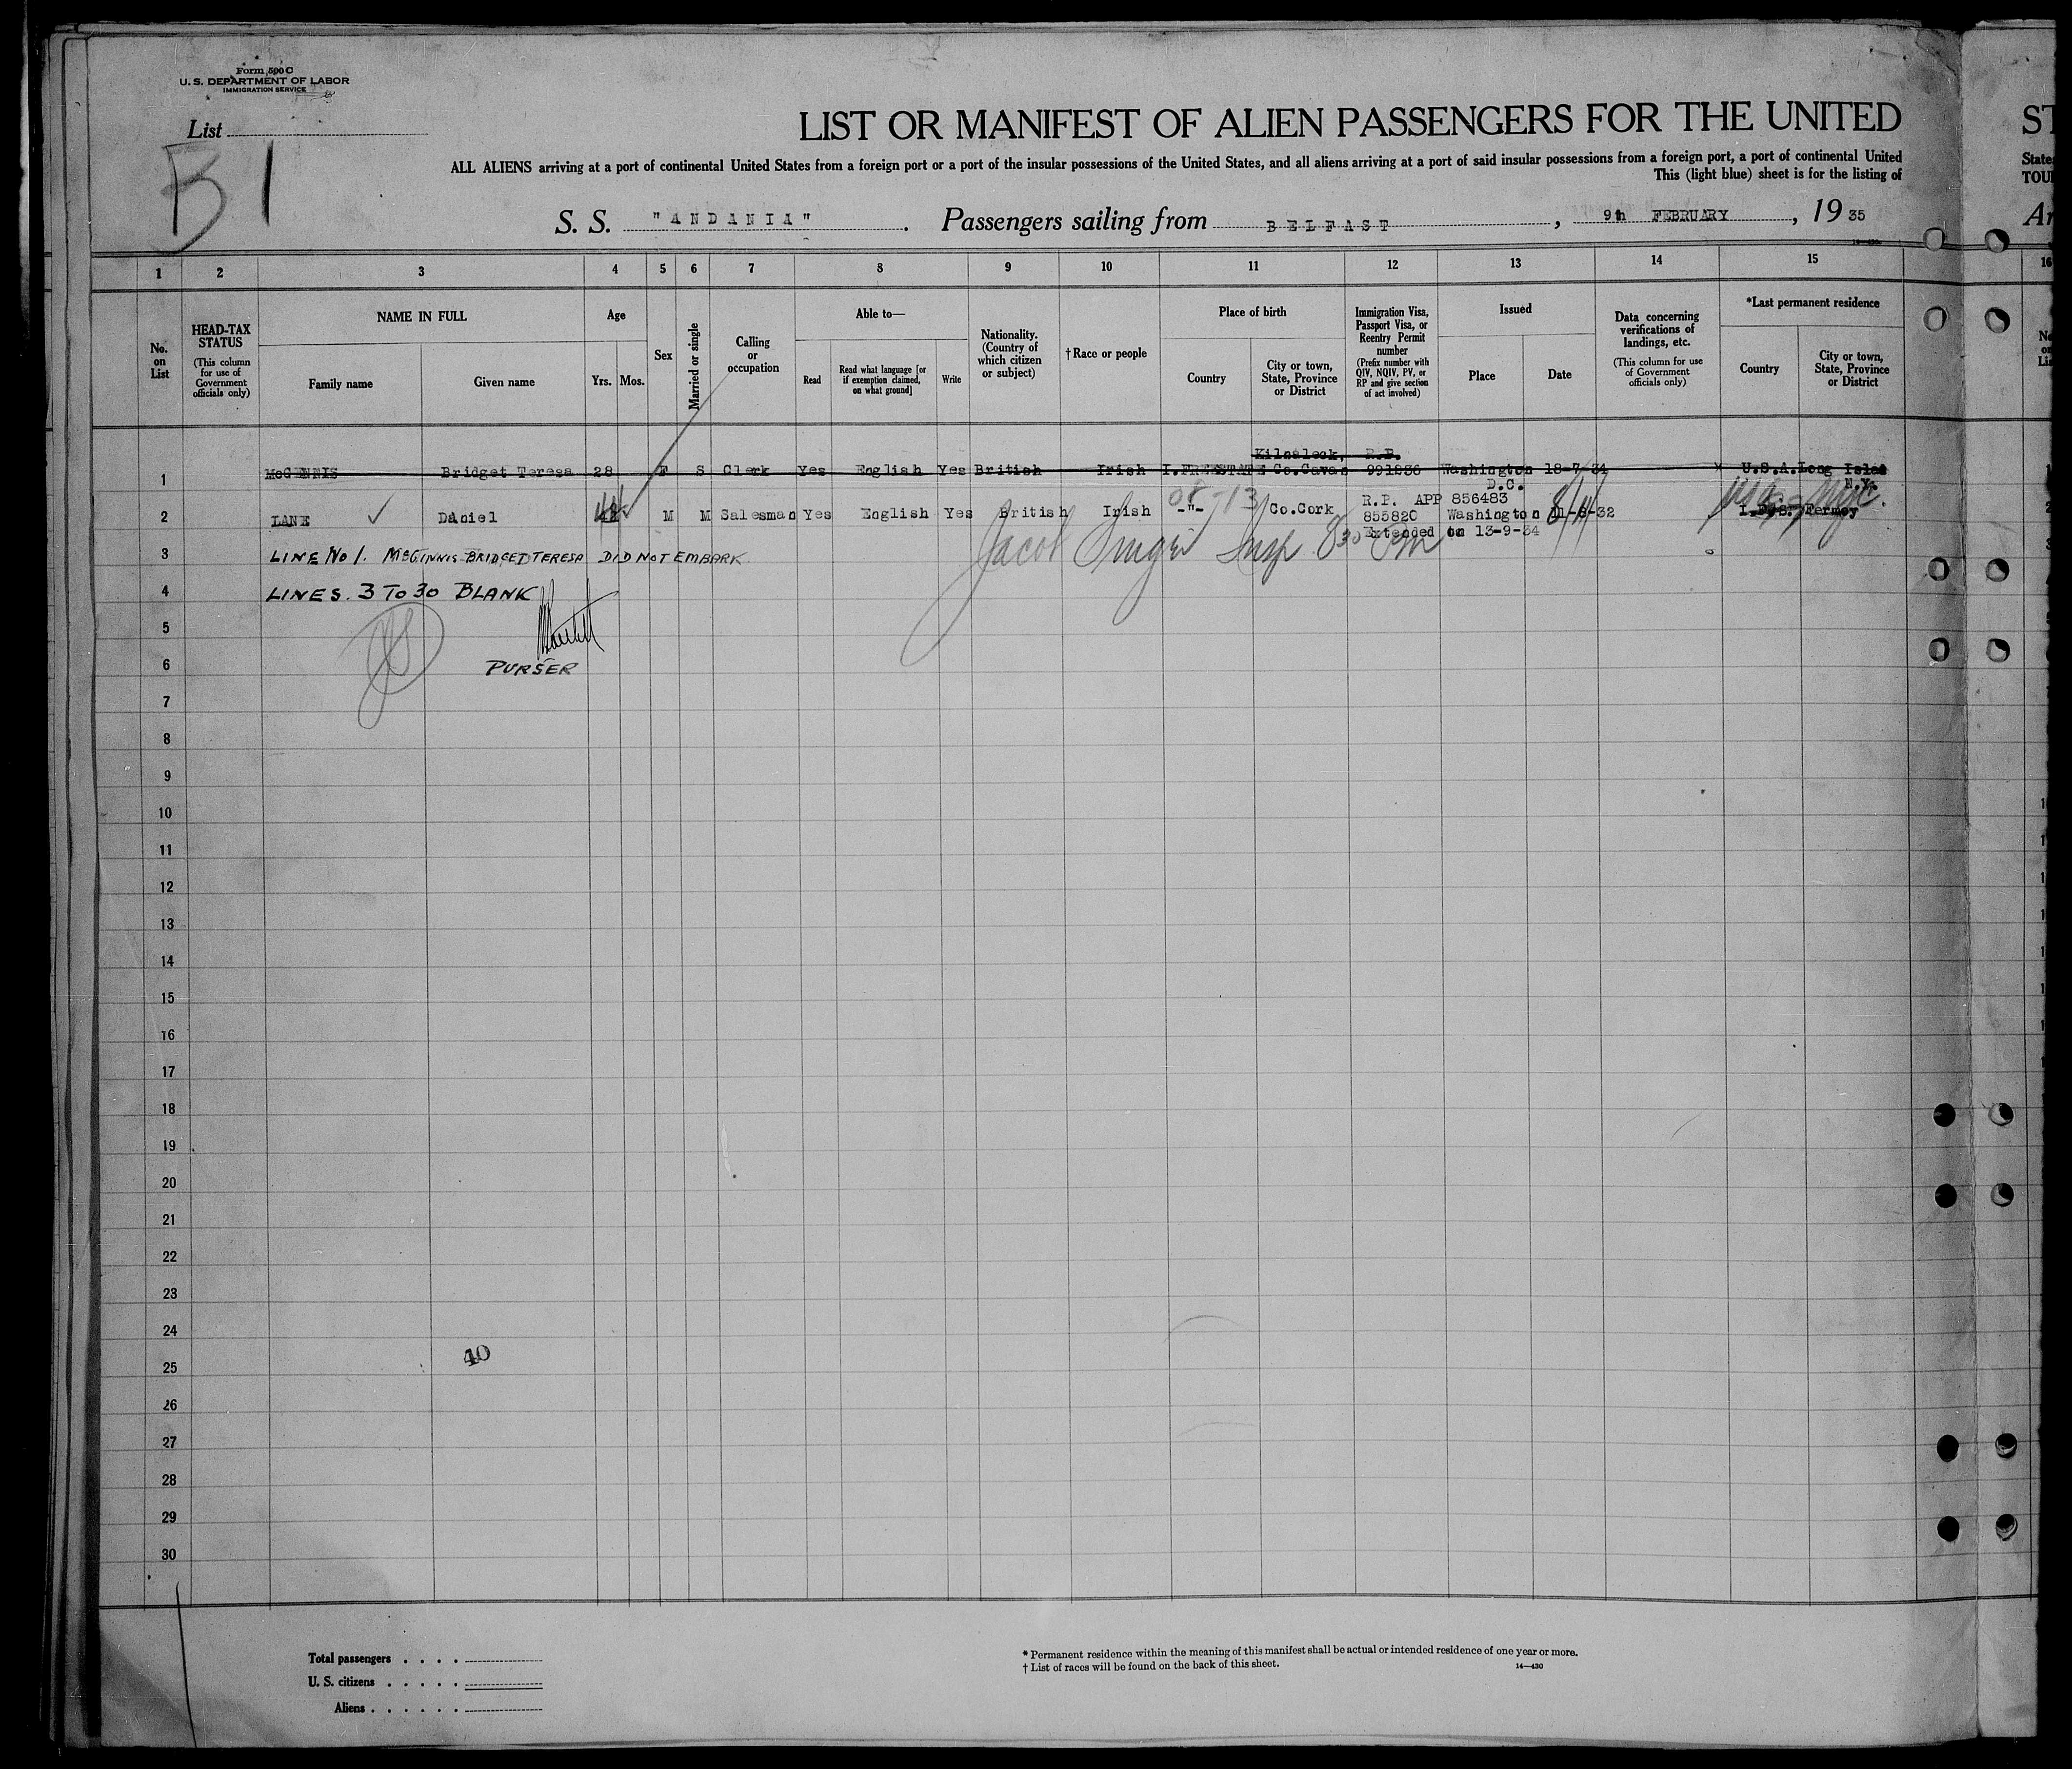 Form 500 C
U. S. DEPARTMENT OF LABOR
IMMIGRATION SERVICE
List
B1
LIST OR MANIFEST OF ALIEN PASSENGERS FOR THE UNITED
ST
ALL ALIENS arriving at a port of continental United States from a foreign port or a port of the insular possessions of the United States, and all aliens arriving at a port of said insular possessions from a foreign port, a port of continental United
States
This (light blue) sheet is for the listing of
TOU
S. S. "ANDANIA". Passengers sailing from BELFAST, 9th FEBRUARY, 19 35
Ar
1 2 3 4 5 6 7 8 9 10 11 12 13 14 15 16
No. on List
HEAD-TAX STATUS (This column for use of Government officials only)
NAME IN FULL
Family name Given name
Age
Yrs. Mos.
Sex
Married or single
Calling or occupation
Able to—
Read Read what language [or if exemption claimed, on what ground] Write
Nationality. (Country of which citizen or subject)
†Race or people
Place of birth
Country City or town, State, Province or District
Immigration Visa, Passport Visa, or Reentry Permit number (Prefix number with QIV, NQIV, PV, or RP and give section of act involved)
Issued
Place Date
Data concerning verifications of landings, etc. (This column for use of Government officials only)
*Last permanent residence
Country City or town, State, Province or District
Kilnaleck, R.P.
1 McGENNIS Bridget Teresa 28 F S Clerk Yes English Yes British Irish I.FREESTATE Co.Cavan 991836 Washington 18-7-34 U.S.A. Long Island
D.C. N.Y.
R.P. APP 856483
2 LANE Daniel M M Salesman Yes English Yes British Irish -"- Co.Cork 855820 Washington 11-8-32 I.F.S. Fermoy
Extended on 13-9-34
3 LINE No 1. McGINNIS BRIDGET TERESA DID NOT EMBARK
Jacob Insp 8 30 Pm
4 LINES. 3 TO 30 BLANK
5
6 PURSER
7
8
9
10
11
12
13
14
15
16
17
18
19
20
21
22
23
24
25
40
26
27
28
29
30
Total passengers . . . .
U. S. citizens . . . . .
Aliens . . . . . .
* Permanent residence within the meaning of this manifest shall be actual or intended residence of one year or more.
† List of races will be found on the back of this sheet.
14—430